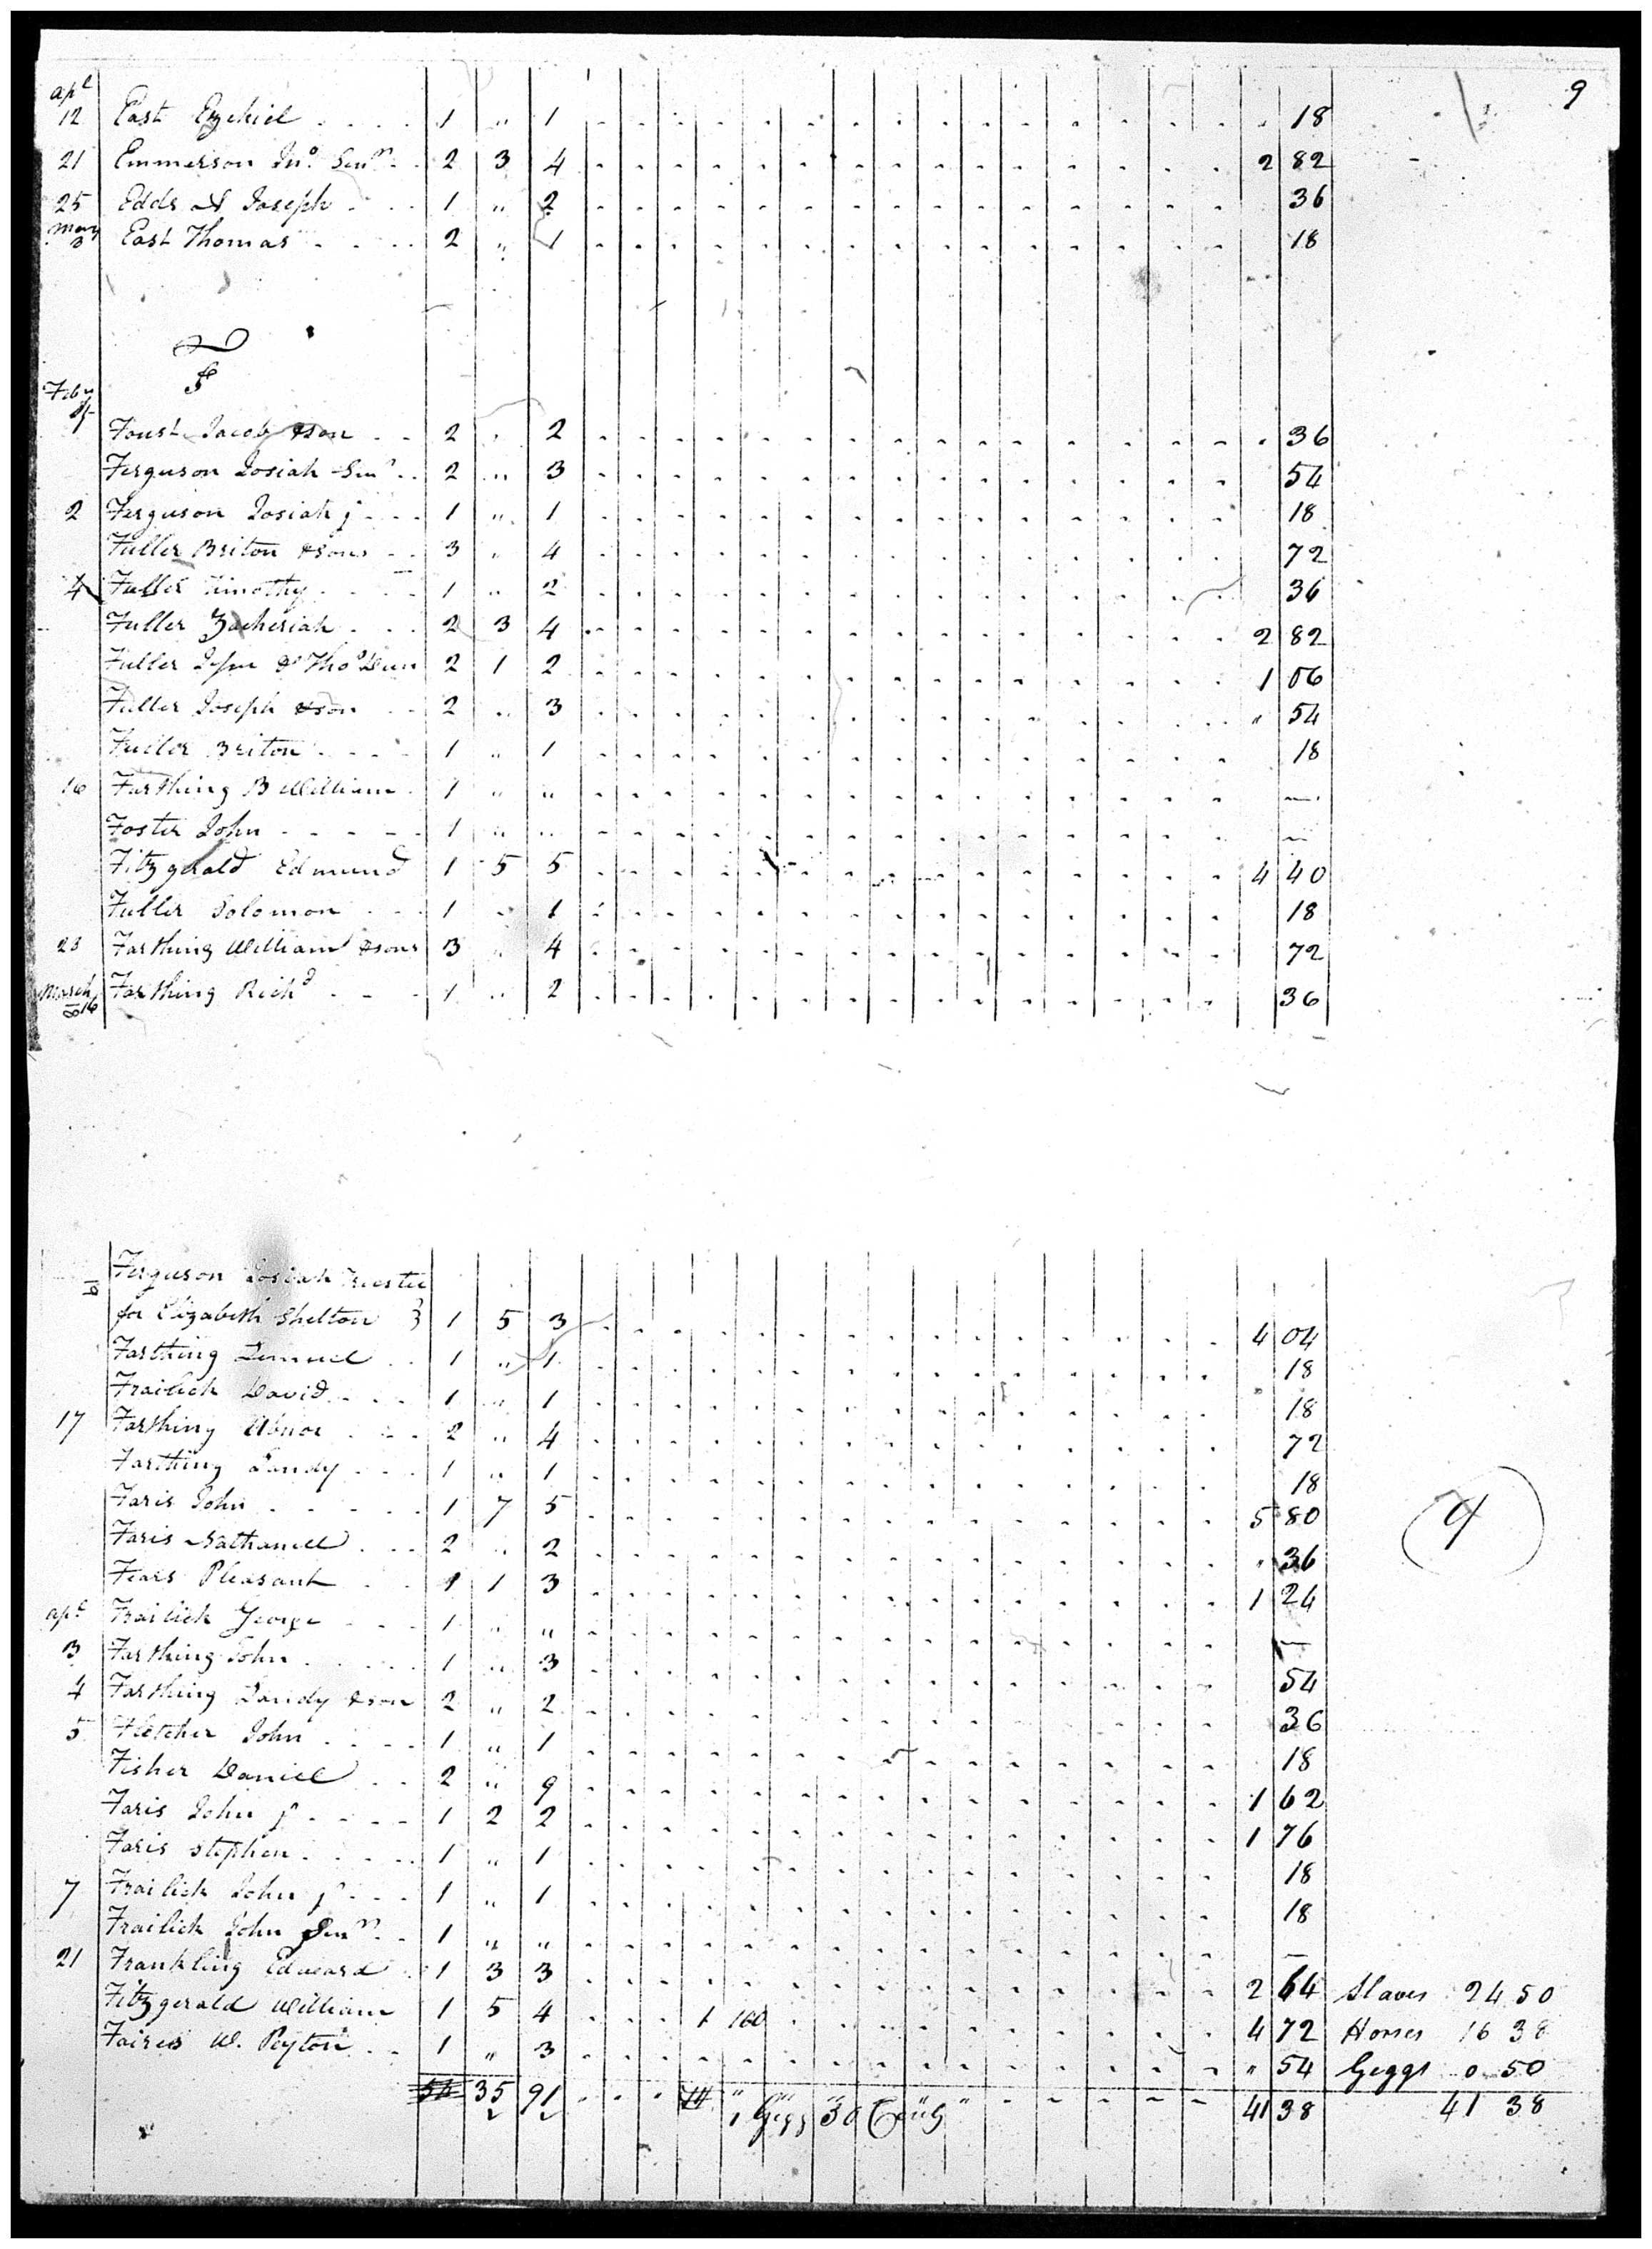 9
apl
12 East Ezekiel 1 " 1 18
21 Emmerson Jno Senr 2 3 4 2 82
25 Edds Joseph 1 " 2 36
May
3 East Thomas 2 " 1 18
F
Feby
Foust Jacob & son 2 2 36
Ferguson Josiah Senr 2 " 3 54
2 Ferguson Josiah j 1 " 1 18
Fuller Briton & sons 3 " 4 72
4 Fuller Timothy 1 " 2 36
Fuller Zacheriah 2 3 4 2 82
Fuller & Thos Dun 2 1 2 1 06
Fuller Joseph & son 2 " 3 " 54
Fuller Briton 1 " 1 18
16 Farthing B William 1 " " —
Foster John 1 " " —
Fitzgerald Edmund 1 5 5 4 40
Fuller Solomon 1 1 18
23 Farthing William & sons 3 " 4 72
March
16 Farthing Richd 1 " 2 36
Ferguson Josiah Trustee
for Elizabeth Shelton } 1 5 3 4 04
Farthing Lemuel 1 " 1 18
Frailick David 1 " 1 18
17 Farthing Abner 2 " 4 72
Farthing Dudy 1 " 1 18
Faris John 1 7 5 5 80
Faris Nathaniel 2 " 2 " 36
Fears Pleasant 1 1 3 1 24
apl Frailick George 1 " " —
3 Farthing John 1 " 3 54
4 Farthing & son 2 " 2 36
5 Fletcher John 1 " 1 18
Fisher Daniel 2 " 9 1 62
Faris John jr 1 2 2 1 76
Faris Stephen 1 " 1 18
7 Frailick John jr 1 " 1 18
Frailick John Senr 1 " " —
21 Frankling Edward 1 3 3 2 64 Slaves 24 50
Fitzgerald William 1 5 4 1 100 4 72 Horses 16 38
Faires W. Peyton 1 " 3 " 54 Geggs 0 50
54 35 91 1 Gegg 41 38 41 38
9